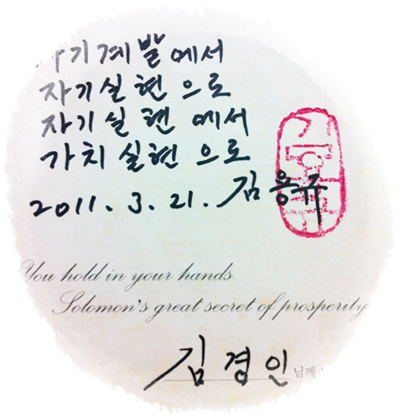 자기계발에서
자기실현으로
자기실현에서
가치실현으로
2011. 3. 21. 김용규
You hold in your hands
Solomon's great secret of prosperity
김경인 님께